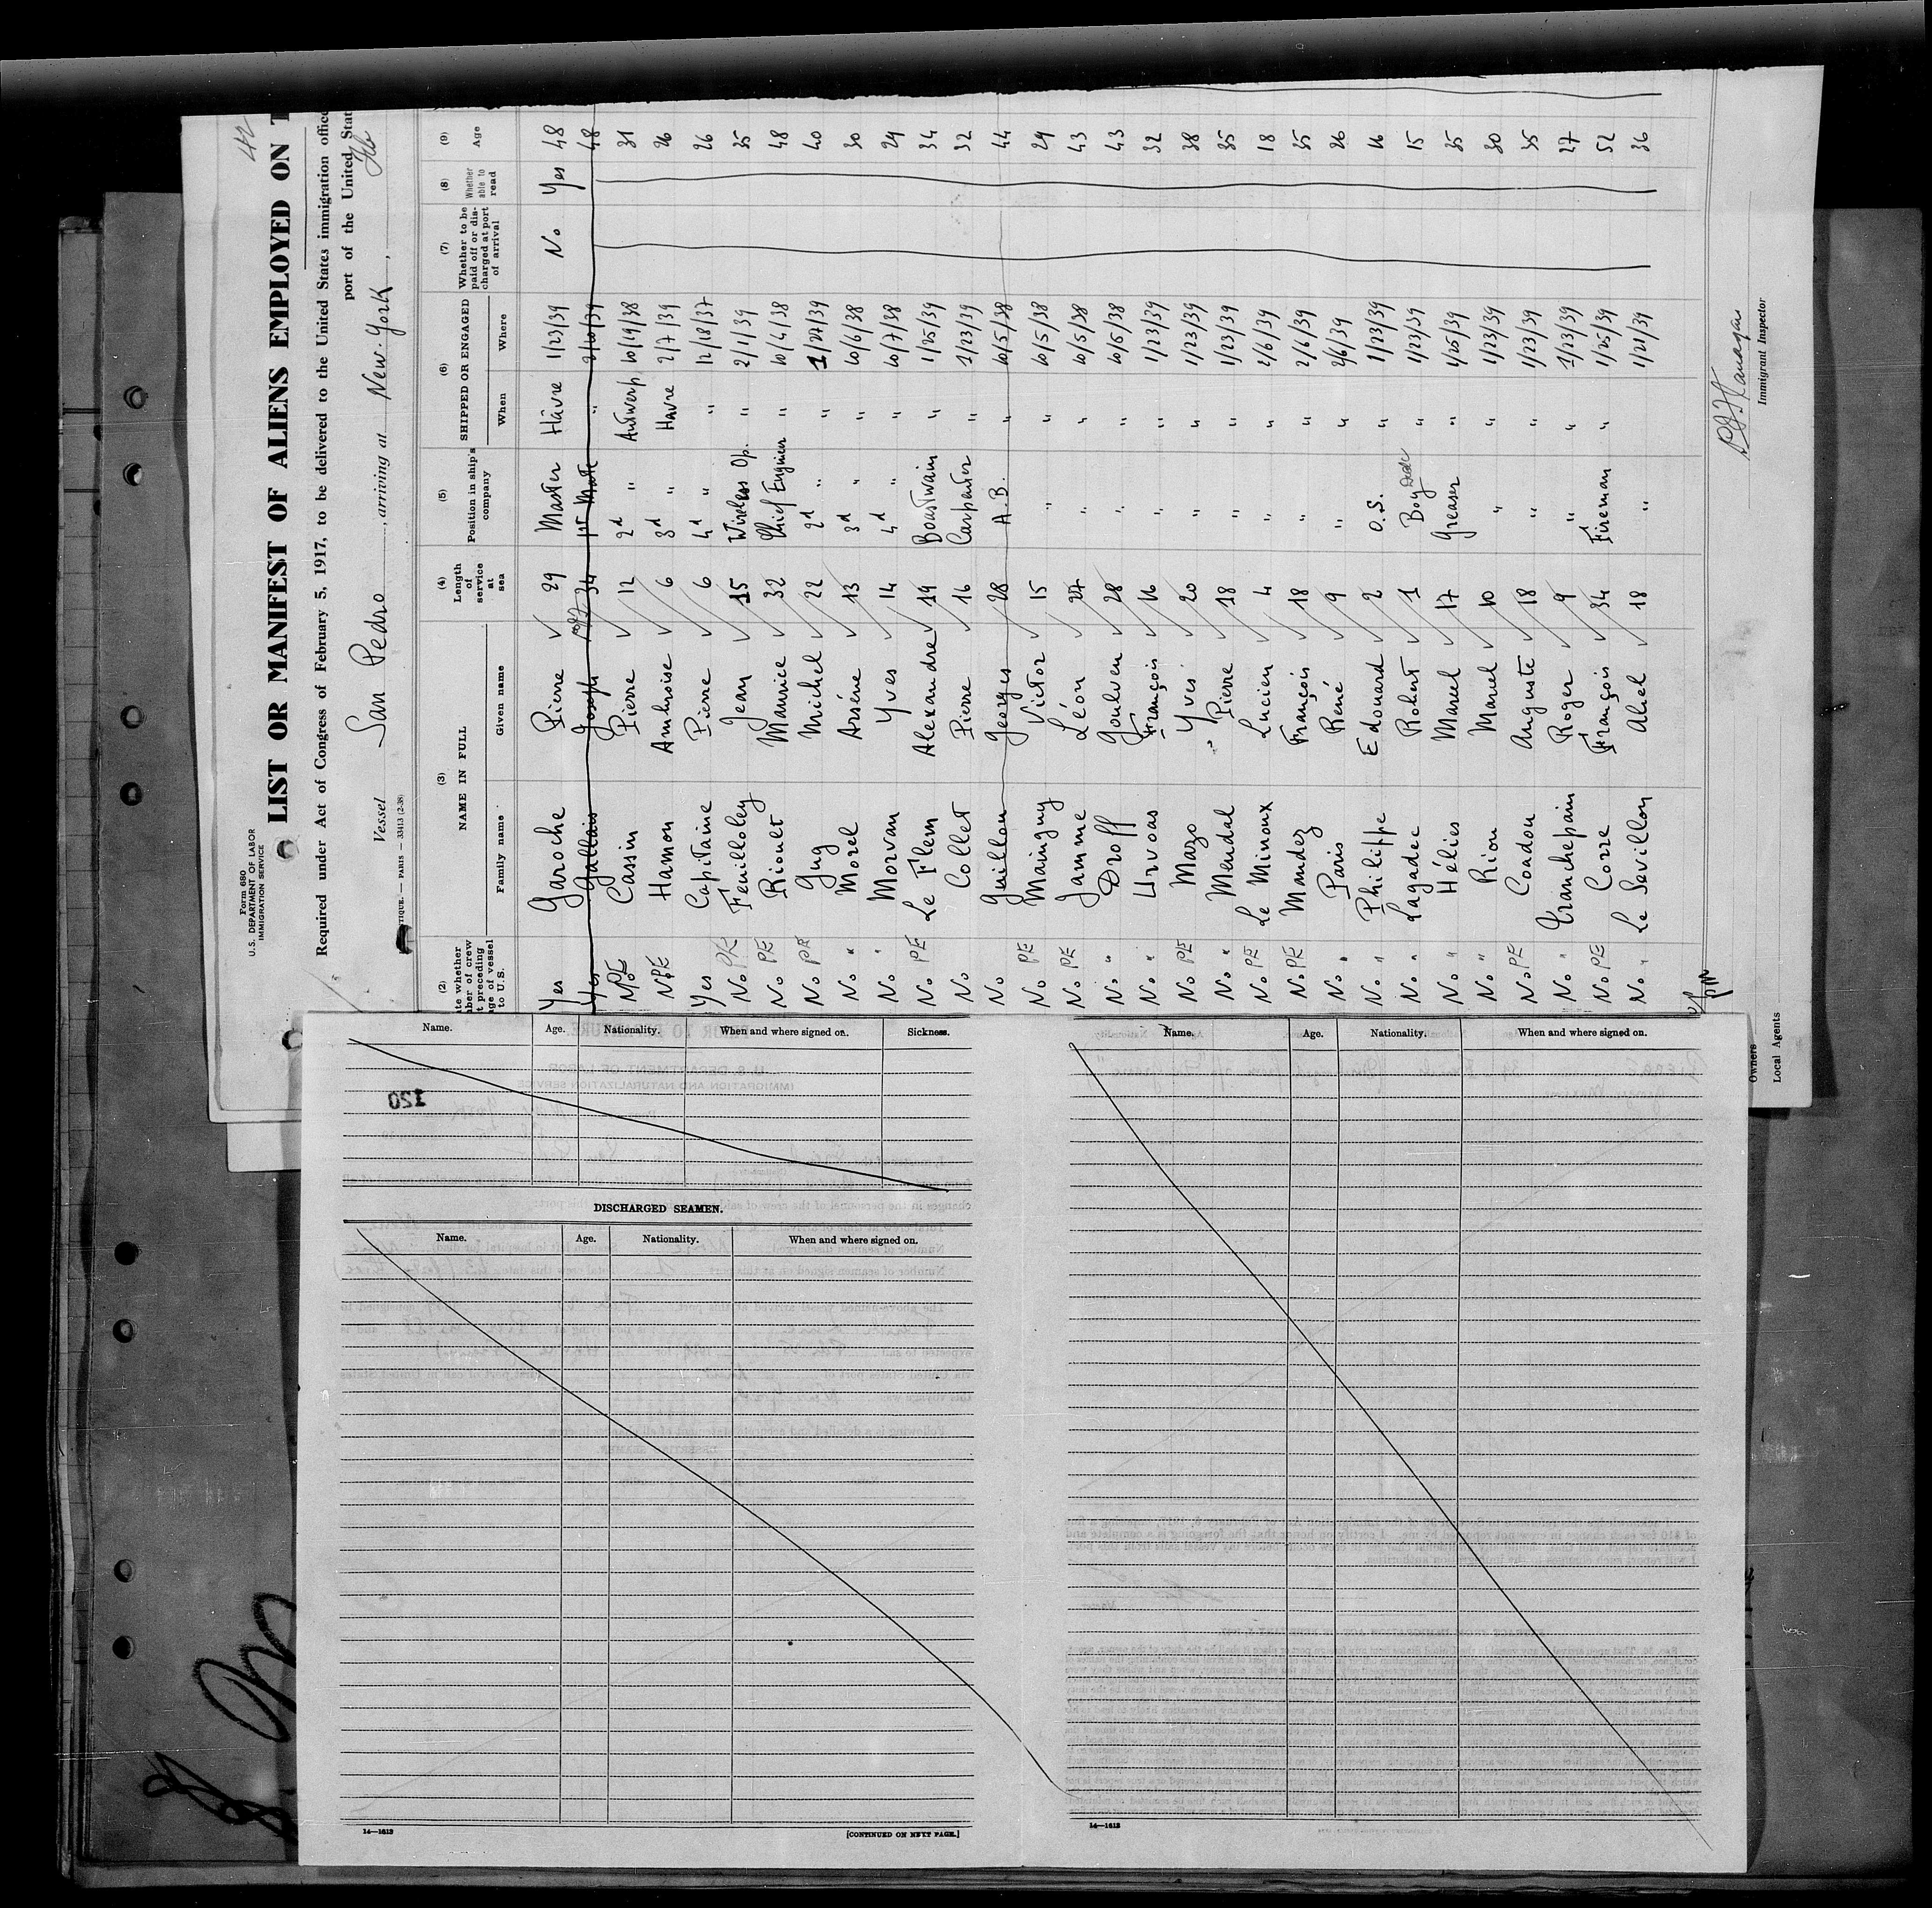 42
Form 680
U.S. DEPARTMENT OF LABOR
IMMIGRATION SERVICE
LIST OR MANIFEST OF ALIENS EMPLOYED ON
Required under Act of Congress of February 5, 1917, to be delivered to the United States immigration
port of the United
Vessel San Pedro, arriving at New-York,
PARIS — 33413 (2-38)
(2) (3) (4) (5) (6) (7) (8) (9)
NAME IN FULL
Family name Given name
Length of service at sea
Position in ship's company
SHIPPED OR ENGAGED
When Where
Whether to be paid off or discharged at port of arrival
Whether able to read
Age
Yes Garoche Pierre 29 Master Hâvre 1/23/39 No Yes 48
Yes Gallais Joseph 34 1st Mate " 2/10/39 48
NPE Cassin Pierre 12 2d " Antwerp 10/19/38 31
NPE Hamon Ambroise 6 3d " Havre 2/7/39 26
Yes Capitaine Pierre 6 4d " " 12/18/37 26
No PE Feuilloley Jean 15 Wireless Op. " 2/1/39 35
No PE Rioult Maurice 32 Chief Engineer " 10/4/38 48
No PE Guy Michel 22 2d " " 1/27/39 40
No " Morel Arsène 13 3d " " 10/6/38 30
No " Morvan Yves 14 4d " " 10/7/38 29
No PE Le Flem Alexandre 19 Boastwain " 1/25/39 34
No Collet Pierre 16 Carpenter " 1/23/39 32
No Guillou Georges 28 A.B. " 10/5/38 44
No PE Maingny Victor 15 " " 10/5/38 29
No PE Jamme Léon 27 " " 10/5/38 43
No " Droff Goulven 28 " " 10/5/38 43
No " Urvoas François 16 " " 1/23/39 32
No PE Mazo Yves 20 " " 1/23/39 38
No " Mendal Pierre 18 " " 1/23/39 35
No PE Le Minoux Lucien 4 " " 2/6/39 18
No PE Mandez François 18 " " 2/6/39 35
No " Paris René 9 " " 2/6/39 26
No " Philippe Edouard 2 O.S. " 1/23/39 16
No " Lagadec Robert 1 Boy Deck " 1/23/39 15
No " Hélies Marcel 17 Greaser " 1/25/39 35
No " Riou Marcel 10 " " 1/23/39 30
No PE Coadou Auguste 18 " " 1/23/39 35
No " Tranchepain Roger 9 " " 1/23/39 27
No PE Corre François 34 Fireman " 1/25/39 52
No " Le Sevillou Abel 18 " 1/21/39 36
Immigrant Inspector
Owners
Local Agents
Name. Age. Nationality. When and where signed on. Sickness.
120
DISCHARGED SEAMEN.
Name. Age. Nationality. When and where signed on.
14—1613
[CONTINUED ON NEXT PAGE.]
Name. Age. Nationality. When and where signed on.
14—1613